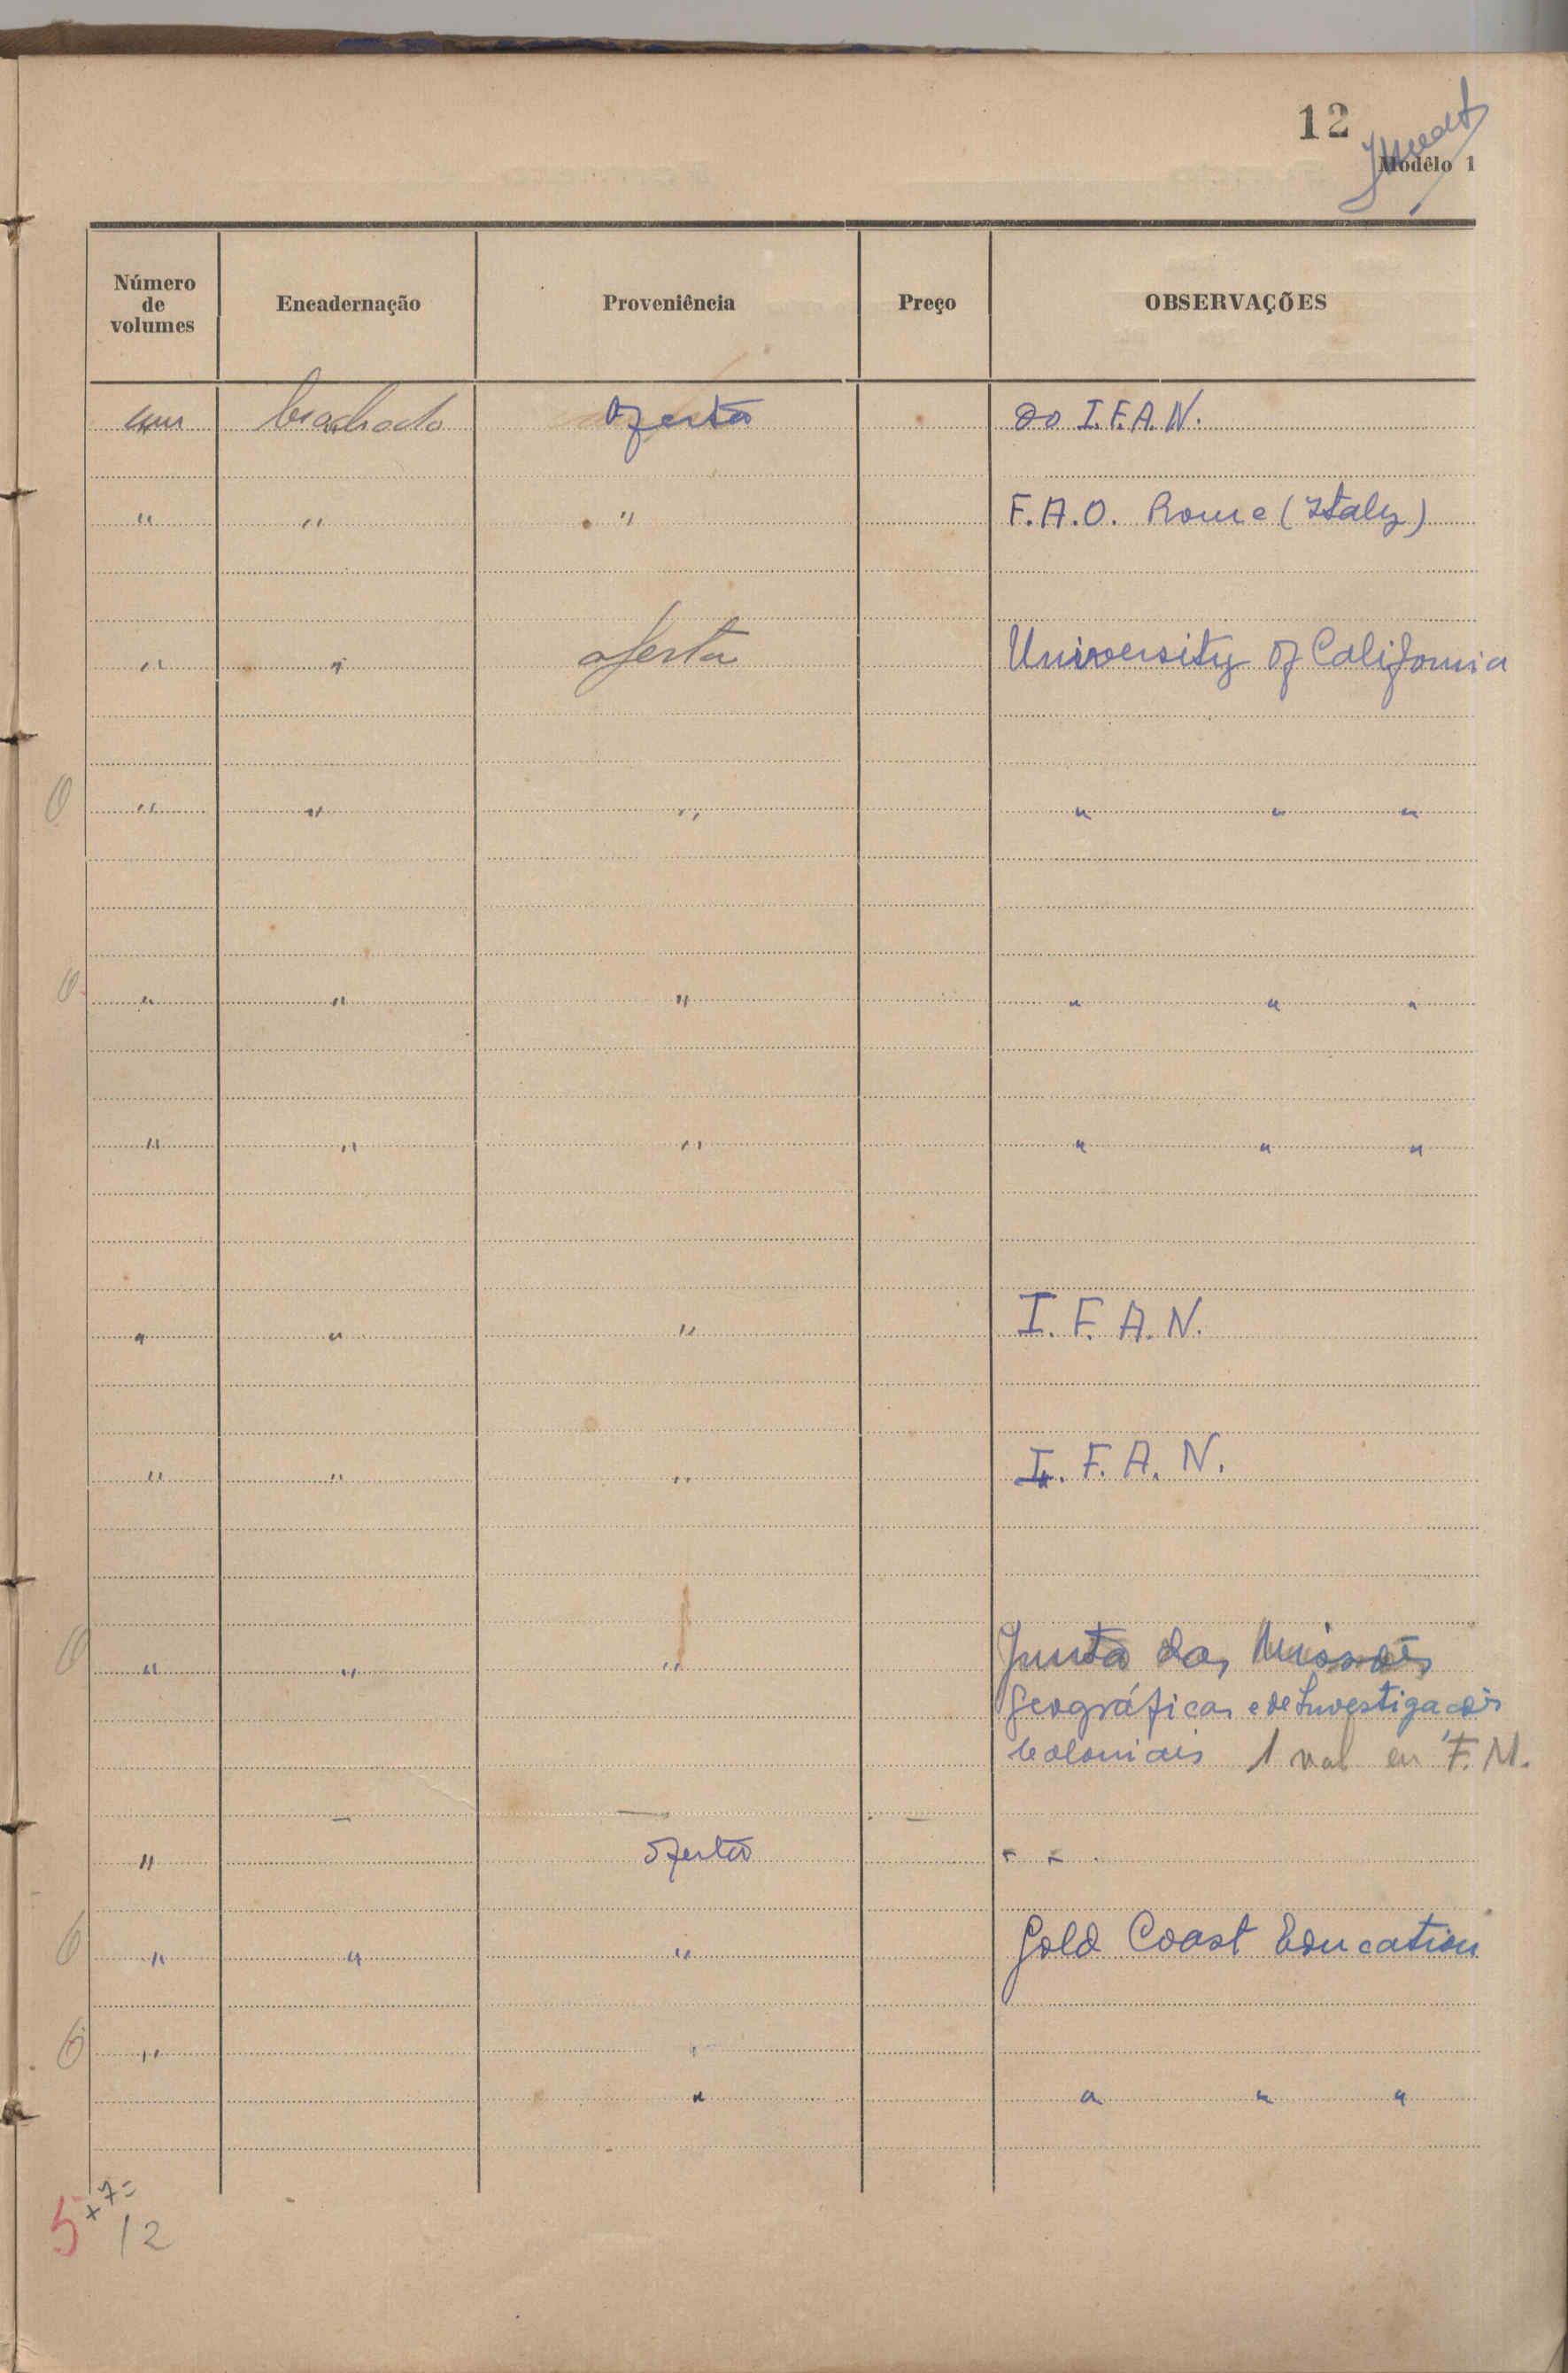 12
Modêlo 1
Número de volumes Encadernação Proveniência Preço OBSERVAÇÕES
um brochado oferta do I.F.A.N.
" " " F.A.O. Rome (Italy)
" " oferta University of California
" " " " " "
" " " " " "
" " " " " "
" " " I.F.A.N.
" " " I.F.A.N.
" " " Junta das Missões
Geográficas e de Investigações
Coloniais 1 vol em F.M.
— — —
" oferta " "
" " " Gold Coast Education
" "
" " " "
5 + 7 =
12